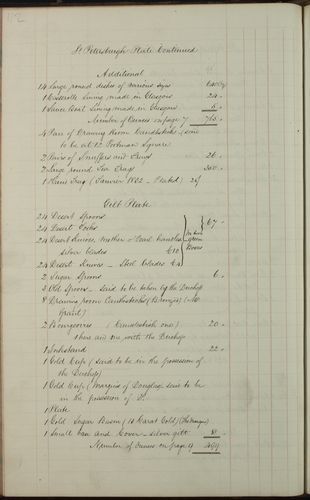 St Petersburgh Plate Continued
Additional
14 Large round dishes of various sizes
1 Casserolle Lining made in Glasgow 24.
1 Sauce Boat Lining made in Glasgow 5.
Number of Ounces on page 7 765.
4 Pairs of Drawing Room Candlesticks, said
to be at 12 Portman Square
2 Pairs of Snuffers and Trays 26.
2 Large round Tea Trays 350.
1 Plain Tray (January 1852 - Plated)
Gilt Plate
24 Desert Spoons
24 Desert Forks 67.
24 Desert Knives, Mother o' Pearl Handles
Silver blades
In two green Boxes
24 Desert Knives - Steel blades
2 Sugar Spoons 6.
3 Old Spoons - said to be taken by the Duchess
8 Drawing room Candlesticks (Bronzes) (Mr
Grant)
2 Bonngeoires (Candlestick one) 20.
1 here and one with the Duchess
1 Inkstand 22.
1 Gold Cup (said to be in the possession of
the Duchess)
1 Gold Cup (Marquis of Douglas said to be
in the possession of Do.
1 Plate
1 Gold Sugar Basin (18 Carat Gold)
1 Small Can and Cover - silver gilt 8.
Number of Ounces on page 9 499